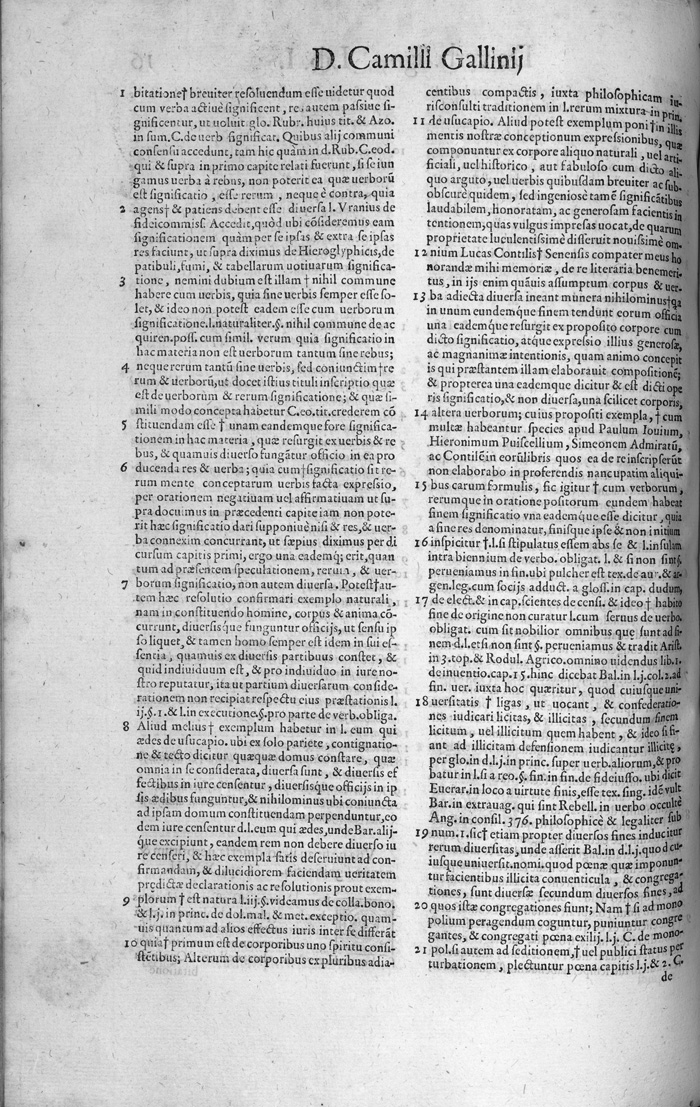 D. Camilli Gallinij
1 bitatione† breuiter resoluendum esse uidetur quod
cum verba actiuè significent, res autem passiue si-
gnificentur, ut uoluit glo. Rubr. huius tit. & Azo.
in sum. C. de uerb significat. Quibus alij communi
consensu accedunt, tam hic quàm in d. Rub. C. eod.
qui & supra in primo capite relati fuerunt, si seiun
gamus uerba à rebus, non poterit ea quæ uerborũ
est significatio, esse rerum, neque è contra, quia
2 agens† & patiens debent esse diuersa l. Vranius de
fideicommiss. Accedit, quòd ubi cõsideremus eam
significationem quàm per se ipsas & extra se ipsas
res faciunt, ut supra diximus de Hieroglyphicis, de
patibuli, fumi, & tabellarum uotiuarum significa-
3 tione, nemini dubium est illam † nihil commune
habere cum uerbis, quia sine uerbis semper esse so-
let, & ideo non potest eadem esse cum uerborum
significatione. l. naturaliter. §. nihil commune de ac
quiren. poss. cum simil. verum quia significatio in
hac materia non est uerborum tantum sine rebus;
4 neque rerum tantũ sine uerbis, sed coniunctim †re
rum & uerborũ, ut docet istius tituli inscriptio quæ
est de uerborùm & rerum significatione; & quæ si-
mili modo concepta habetur C. eo. tit. crederem cõ
5 stituendam esse † unam eandemque fore significa-
tionem in hac materia, quæ resurgit ex uerbis & re
bus, & quamuis diuerso fungãtur officio in ea pro
6 ducenda res & uerba; quia cum†significatio sit re-
rum mente conceptarum uerbis facta expressio,
per orationem negatiuam uel affirmatiuam ut su-
pra docuimus in præcedenti capite iam non pote-
rit hæc significatio dari supponi uè nisi & res, & uer-
ba connexim concurrant, ut sæpius diximus per di
cursum capitis primi, ergo una eademq; erit, quan
tum ad præsentem speculationem, rerum, & uer-
7 borum significatio, non autem diuersa. Potest†au-
tem hæc resolutio confirmari exemplo naturali,
nam in constituendo homine, corpus & anima cõ-
currunt, diuersisque funguntur officijs, ut sensu ip
so liquet, & tamen homo semper est idem in sui es-
sentia, quamuis ex diuersis partibus constet, &
quid indiuiduum est, & pro indiuiduo in iure no-
stro reputatur, ita ut partium diuersarum conside-
rationem non recipiat respectu eius præstationis l.
ij. §. 1. & l. in executione. §. pro parte de verb. obliga.
8 Aliud melius† exemplum habetur in l. eum qui
ædes de usucapio. ubi ex solo pariete, contignatio-
ne & tecto dicitur quæquæ domus constare, quæ
omnia in se considerata, diuersa sunt, & diuersis ef
fectibus in iure censentur, diuersisque officijs in ip
sis ædibus funguntur, & nihilominus ubi coniuncta
ad ipsam domum constituendam perpenduntur, eo
dem iure censentur d. l. eum qui ædes, unde Bar. alij-
que excipiunt, eandem rem non debere diuerso iu
re censeri, & hæc exempla satis deseruiunt ad con-
firmandam, & dilucidiorem faciendam ueritatem
prędictæ declarationis ac resolutionis prout exem-
9 plorum † est natura l. iij. §. videamus de colla. bono.
& l. j. in princ. de dol. mal. & met. exceptio. quam-
uis quantum ad alios effectus iuris inter se differãt
10 quia† primum est de corporibus uno spiritu consi-
stẽtibus; Alterum de corporibus ex pluribus adia-
centibus compactis, iuxta philosophicam iu-
risconsulti traditionem in l. rerum mixtura in prin.
11 de usucapio. Aliud potest exemplum poni†in illis
mentis nostræ conceptionum expressionibus, quæ
componuntur ex corpore aliquo naturali, uel arti-
ficiali, uel historico, aut fabuloso cum dicto ali-
quo arguto, uel uerbis quibusdam breuiter ac sub-
obscurè quidem, sed ingeniosè tamẽ significãtibus
laudabilem, honoratam, ac generosam facientis in
tentionem; quas vulgus impresas uocat, de quarum
proprietate luculentissimè disseruit nouissimè om-
12 nium Lucas Contilis† Senensis compater meus ho
norandæ mihi memoriæ, de re literaria benemeri-
tus, in ijs enim quãuis assumptum corpus & uer-
13 ba adiecta diuersa ineant munera nihilominus†qa
in unum eundemque finem tendunt eorum officia
una eademque resurgit ex proposito corpore cum
dicto significatio, atque expressio illius generosæ,
ac magnanimæ intentionis, quam animo concepit
is qui præstantem illam elaborauit compositionẽ;
& propterea una eademque dicitur & est dicti ope
ris significatio, & non diuersa, una scilicet corporis,
14 altera uerborum; cuius propositi exempla, † cum
multæ habeantur species apud Paulum Iouium,
Hieronimum Puiscellium, Simeonem Admiratũ,
ac Contilẽ in eorũ libris quos ea de re inscripserũt
non elaborabo in proferendis nancupatim aliqui-
15 bus carum formulis, sic igitur † cum verborum,
rerumque in oratione positorum eundem habeat
finem significatio vna eademque esse dicitur, quia
a fine res denominatur, finisque ipse & non initium
16 inspicitur †. l. si stipulatus essem abs te & l. insulam
intra biennium de verbo. obligat. l. & si non sint §.
perueniamus in fin. ubi pulcher est tex. de aur. & ar-
gen. leg. cum socijs adduct. a gloss. in cap. dudum,
17 de elect. & in cap. scientes de censi. & ideo † habito
fine de origine non curatur l. cum seruus de uerbo.
obligat. cum sit nobilior omnibus que sunt ad fi-
nem d. l. et si non sint §. perueniamus & tradit Arist.
in 3. top. & Rodul. Agrico. omnino uidendus lib. 1.
de inuentio. cap. 15. hinc dicebat Bal. in l. j. col. 2. ad
fin. uer. iuxta hoc quæritur, quod cuiusque uni-
18 uersitatis † ligas, ut uocant, & confederatio-
nes iudicari licitas, & illicitas, secundum finem
licitum, uel illicitum quem habent, & ideo si fi-
ant ad illicitam defensionem iudicantur illicitę,
per glo. in d. l. j. in princ. super uerb. aliorum, & pro
batur in l. si a reo. §. fin. in fin. de fideiusso. ubi dicit
Euerar. in loco a uirtute finis, esse tex. sing. idẽ vult
Bar. in extrauag. qui sint Rebell. in uerbo occultè
Ang. in consil. 376. philosophicè & legaliter sub
19 num. 1. sic† etiam propter diuersos fines inducitur
rerum diuersitas, unde asserit Bal. in d. l. j. quod cu-
iusque uniuersit. nomi. quod pœnæ quæ imponun-
tur facientibus illicita conuenticula, & congrega-
tiones, sunt diuersæ secundum diuersos fines, ad
20 quos istæ congregationes fiunt; Nam † si ad mono
polium peragendum coguntur, puniuntur congre
gantes, & congregati pœna exilij. l. j. C. de mono-
21 pol. si autem ad seditionem, † uel publici status per
turbationem, plectuntur pœna capitis l. j. & 2. C.
de